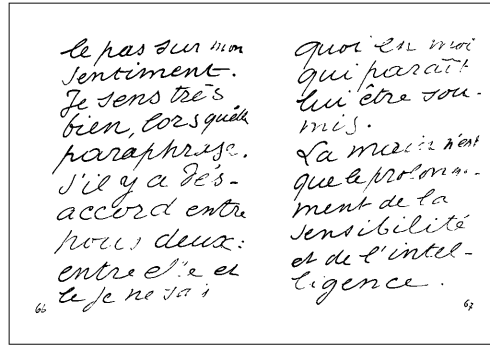 le pas sur mon
sentiment.
Je sens très
bien, lorsqu'elle
paraphrase.
S'il y a dés-
accord entre
nous deux :
entre elle et
le je ne sais
66
quoi en moi
qui paraît
lui être sou-
mis.
La main n'est
que le prolonge-
ment de la
sensibilité
et de l'intel-
ligence.
67